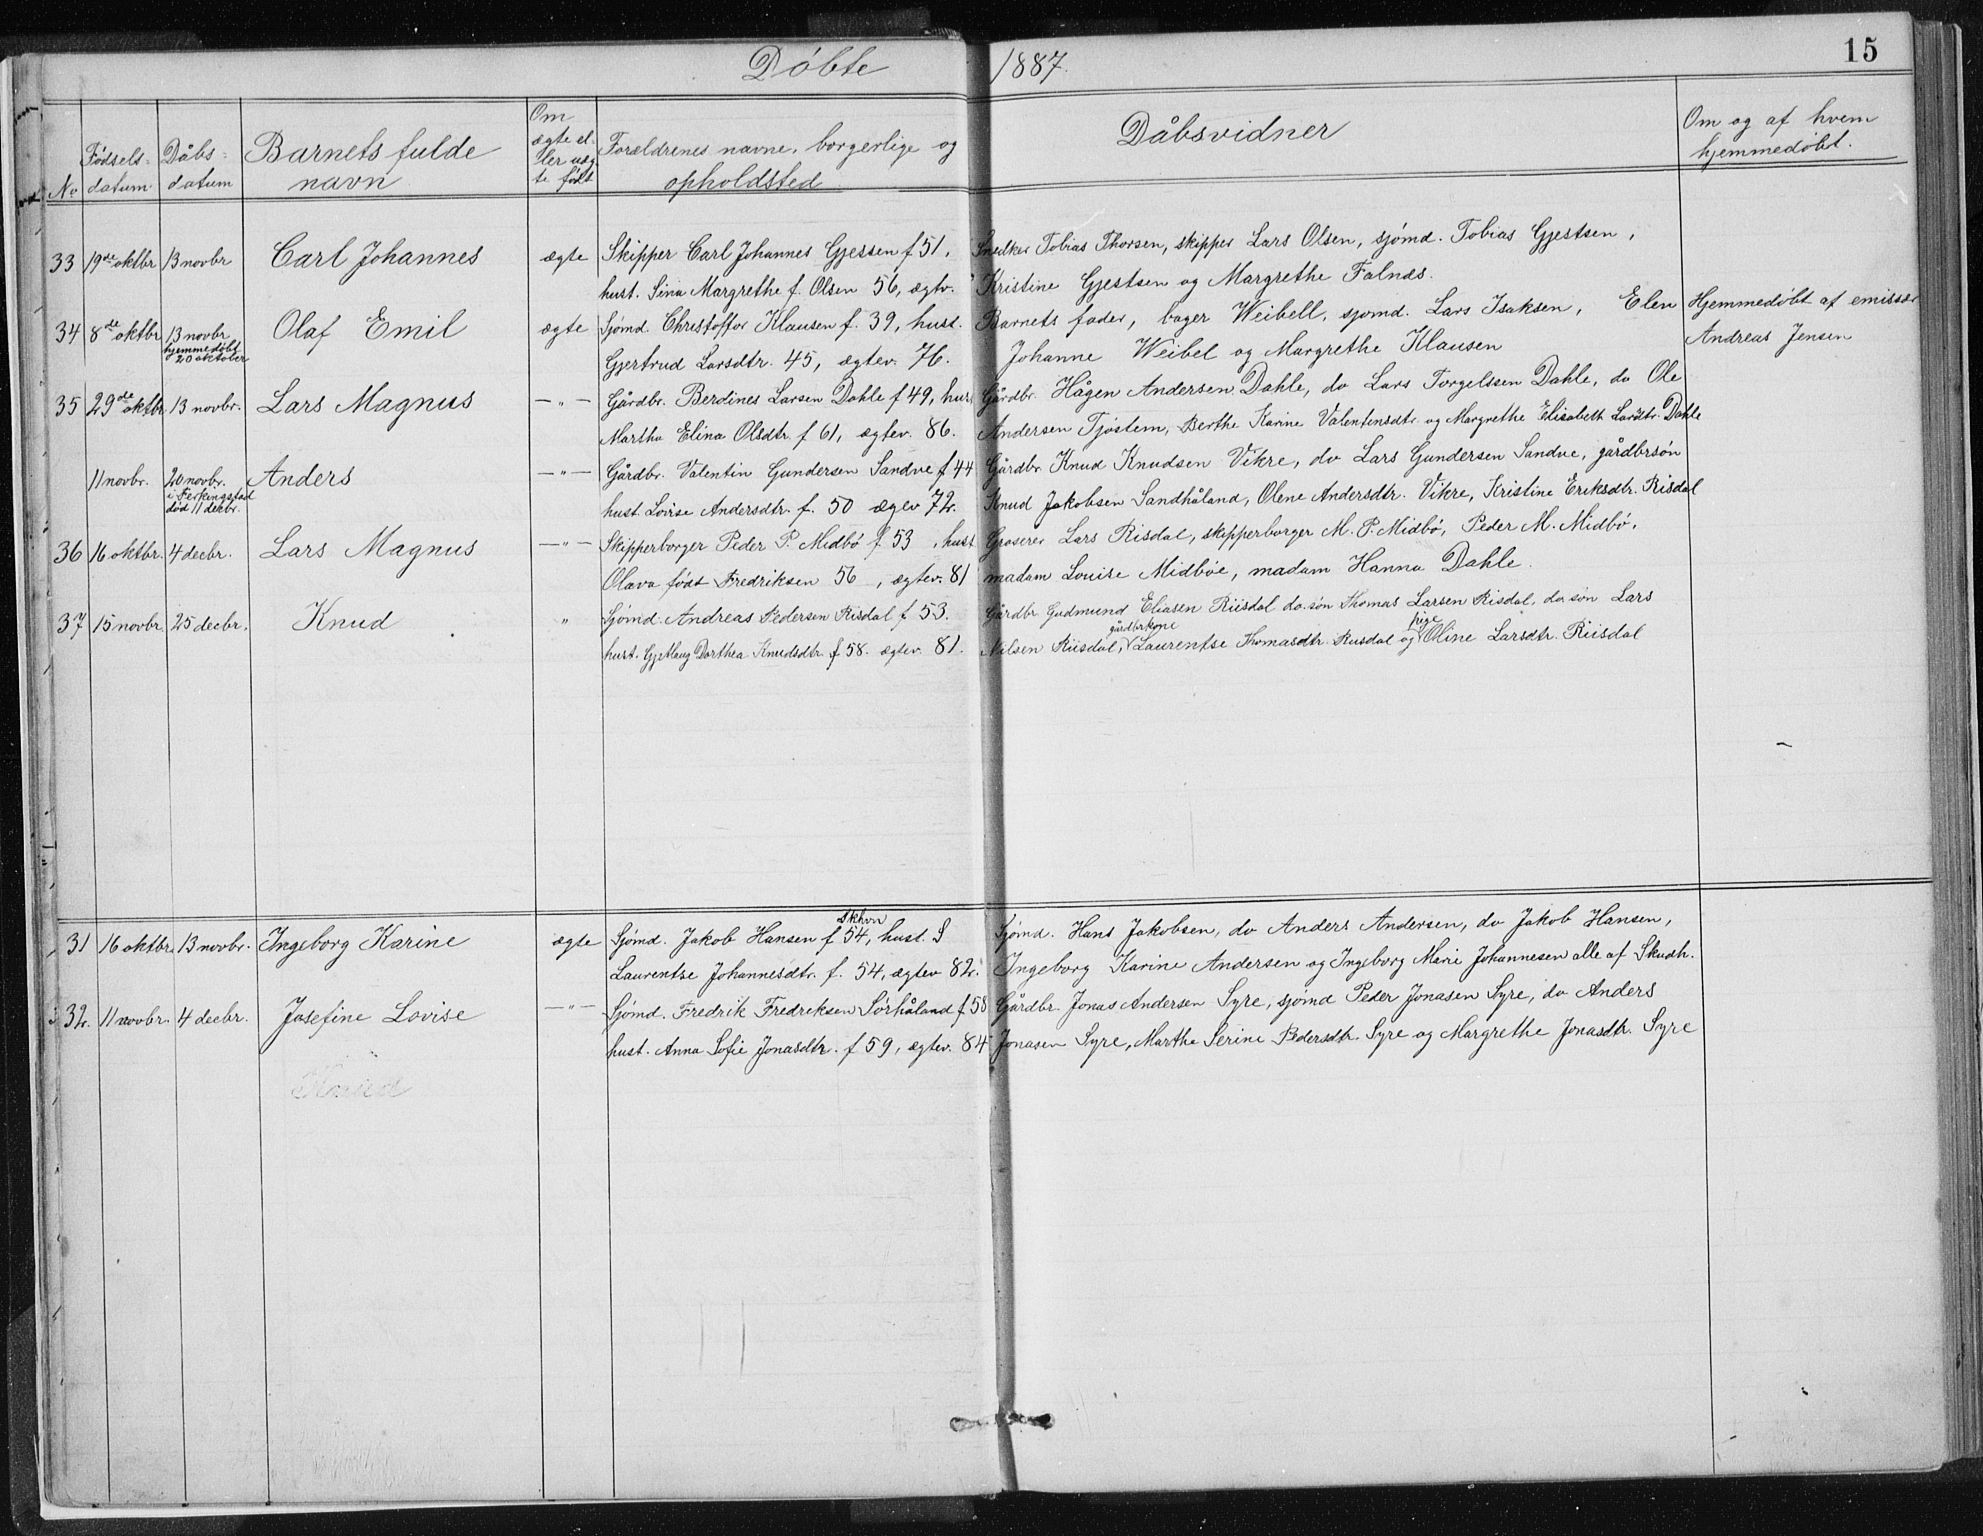 Døbte 1887. 15
No Fødsels-datum Dåbs-datum Barnets fulde navn Om ægte el-ler uæg-te født Forældrenes navne, borgerlige og opholdsted Dåbsvidner Om og af hvem hjemmedøbt.
33 19de oktbr 13 novbr Carl Johannes ægte Skipper Carl Johannes Gjessen f 51, Snedker Tobias Thorsen, skipper Lars Olsen, sjømd. Tobias Gjestsen,
hust. Sina Margrethe f. Olsen 56, ægtv. Kristine Gjestsen og Margrethe Falnæs.
34 8de oktbr 13 novbr Olaf Emil ægte Sjømd. Christoffor Klausen f. 39, hust. Barnets fader, bager Weibell, sjømd. Lars Isaksen, Elen Hjemmedøbt af emissær
hjemmedøbt 20 oktober Gjertrud Larsdtr. 45, ægtev. 76. Johanne Weibel og Margrethe Klausen Andreas Jensen
35 29de oktbr 13 novbr. Lars Magnus —"— Gårdbr. Berdines Larsen Dahle f 49, hus Gårdbr. Hågen Andersen Dahle, do Lars Torgelssen Dahle, do Ole
Martha Elina Olsdtr. f 61, ægtev. 86. Andersen Tjøstem, Berthe Karine Valentinsdtr. og Margrethe Elisabeth Larsdtr. Dahle
11 novbr. 20 novbr. Anders —"— Gårdbr. Valentin Gundersen Sandve f 44 Gårdbr Knud Knudsen Vikre, do Lars Gundersen Sandve, gårdbrsøn
i Ferkingstad død 11 decbr. hust. Lovise Andersdtr. f. 50 ægtev 72. Knud Jakobsen Sandhåland, Olene Andersdtr. Vikre, Kristine Eriksdtr. Risdal
36 16 oktbr. 4 decbr. Lars Magnus —"— Skipperborger Peder P. Midbø f 53, hust Groserer Lars Risdal, skipperborger M. P. Midbø, Peder M. Midbø,
Olava født Fredriksen 56, ægtev. 81 madam Louise Midbøe, madam Hanna Dahle.
37 15 novbr 25 decbr. Knud " Sjømd. Andreas Pedersen Risdal f 53. Gårdbr Gudmund Eliasen Riisdal do.søn Thomas Larsen Risdal, do.søn Lars
hust. Gjetlaug Dorthea Knudsdtr. f 58. ægtev. 81. Nilsen Riisdal, gårdbrkone Laurentse Thomasdtr. Riisdal og pige Oline Larsdtr. Riisdal
31 16 oktbr. 13 novbr. Ingeborg Karine ægte Sjømd. Jakob Hansen Skhvn f 54, hust. S Sjømd. Hans Jakobsen, do Anders Andersen, do Jakob Hansen,
Laurentse Johannesdtr. f. 54, ægtev 82. Ingeborg Karine Andersen og Ingeborg Marie Johannesen alle af Skudh.
32. 11 novbr. 4 decbr. Josefine Lovise —"— Sjømd. Fredrik Fredriksen Sørhåland f 58 Gårdbr. Jonas Andersen Syre, sjømd Peder Jonasen Syre, do Anders
hust. Anna Sofie Jonasdtr. f 59, ægtev. 84 Jonasen Syre, Marthe Serine Pedersdtr. Syre og Margrethe Jonasdtr. Syre
Knud